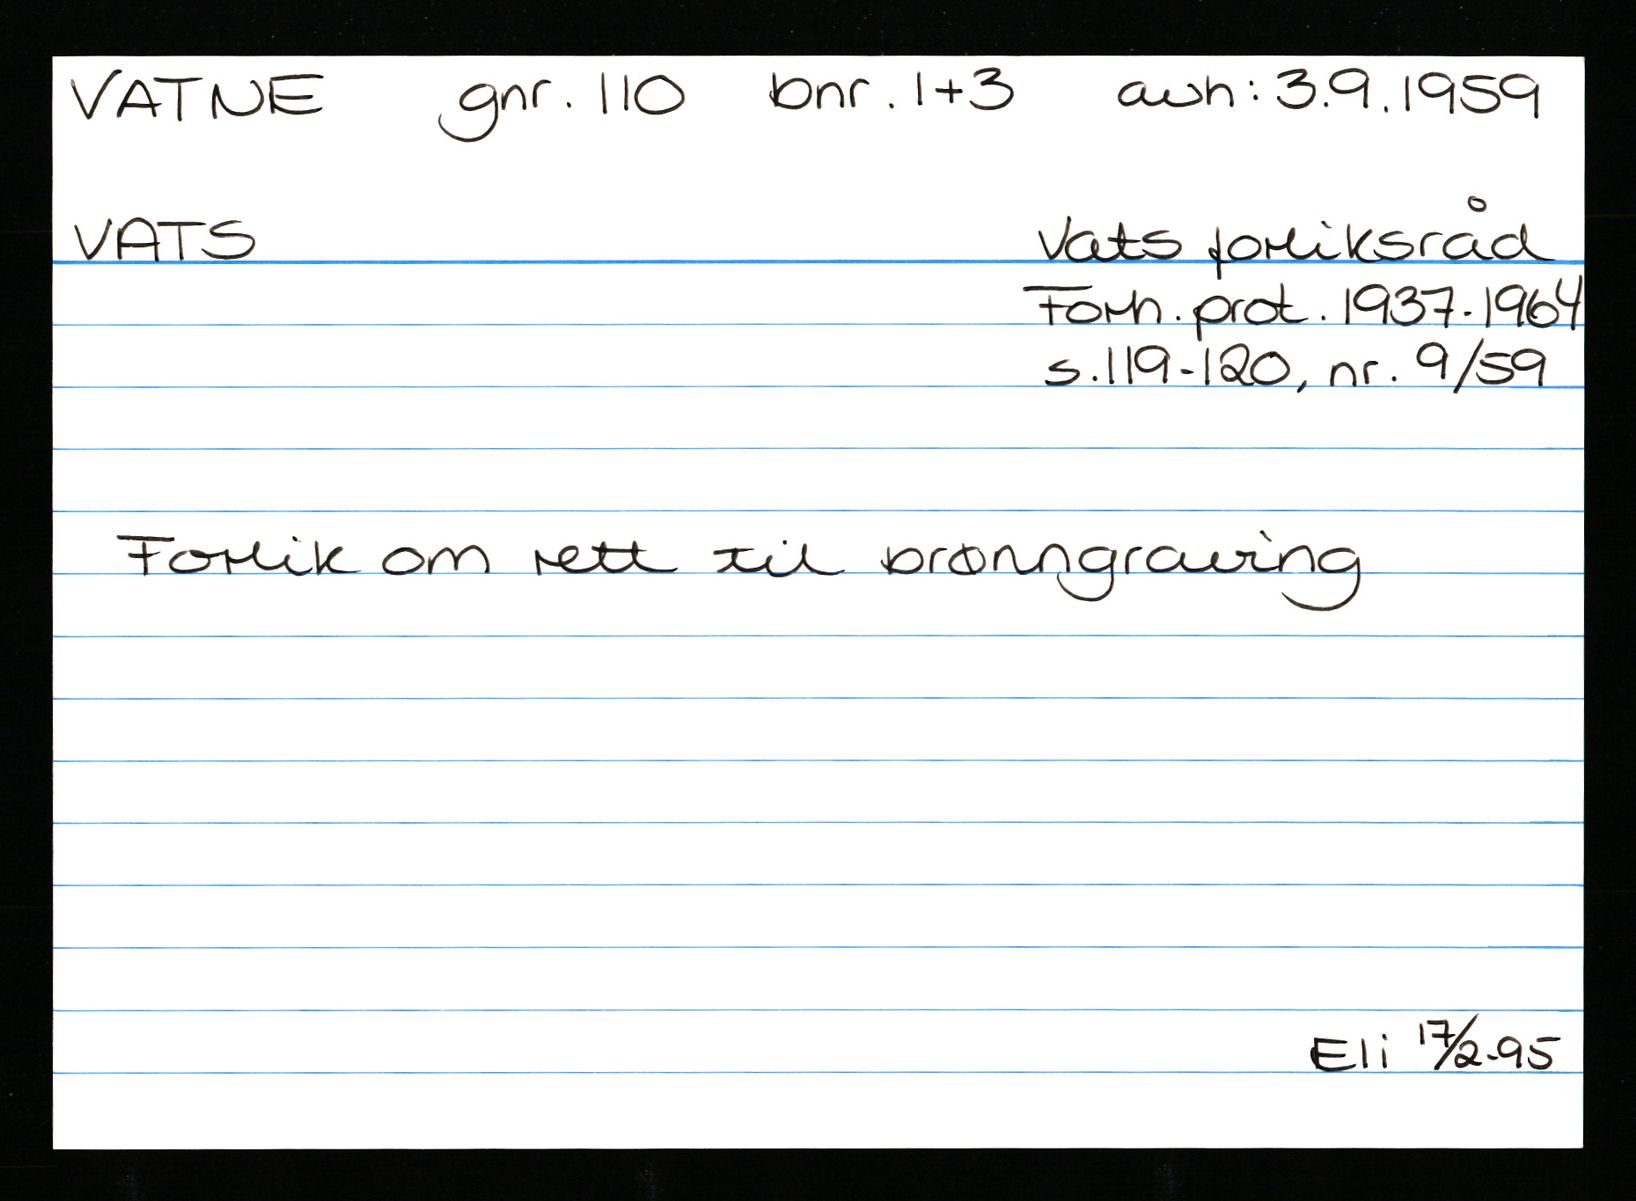 VATNE gnr. 110 bnr. 1+3 avh: 3.9.1959
VATS Vats forliksråd
Forh. prot. 1937-1964
s. 119-120, nr. 9/59
Forlik om rett til brønngraving
Eli 17/2-95